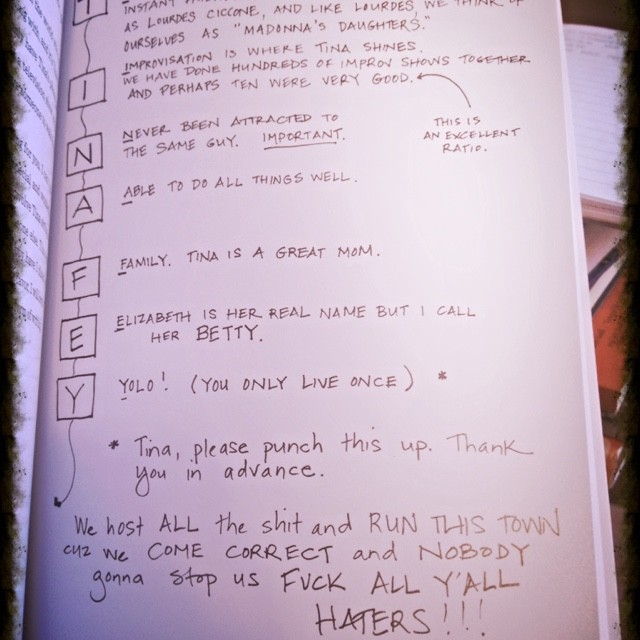 T
AS LOURDES CICCONE, AND LIKE LOURDES, WE THINK OF
OURSELVES AS "MADONNA'S DAUGHTERS."
I IMPROVISATION IS WHERE TINA SHINES.
WE HAVE DONE HUNDREDS OF IMPROV SHOWS TOGETHER
AND PERHAPS TEN WERE VERY GOOD.
THIS IS
AN EXCELLENT
RATIO.
N NEVER BEEN ATTRACTED TO
THE SAME GUY. IMPORTANT.
A ABLE TO DO ALL THINGS WELL.
F FAMILY. TINA IS A GREAT MOM.
E ELIZABETH IS HER REAL NAME BUT I CALL
HER BETTY.
Y YOLO! (YOU ONLY LIVE ONCE) *
* Tina, please punch this up. Thank
you in advance.
We host ALL the shit and RUN THIS TOWN
cuz we COME CORRECT and NOBODY
gonna stop us FUCK ALL Y'ALL
HATERS!!!